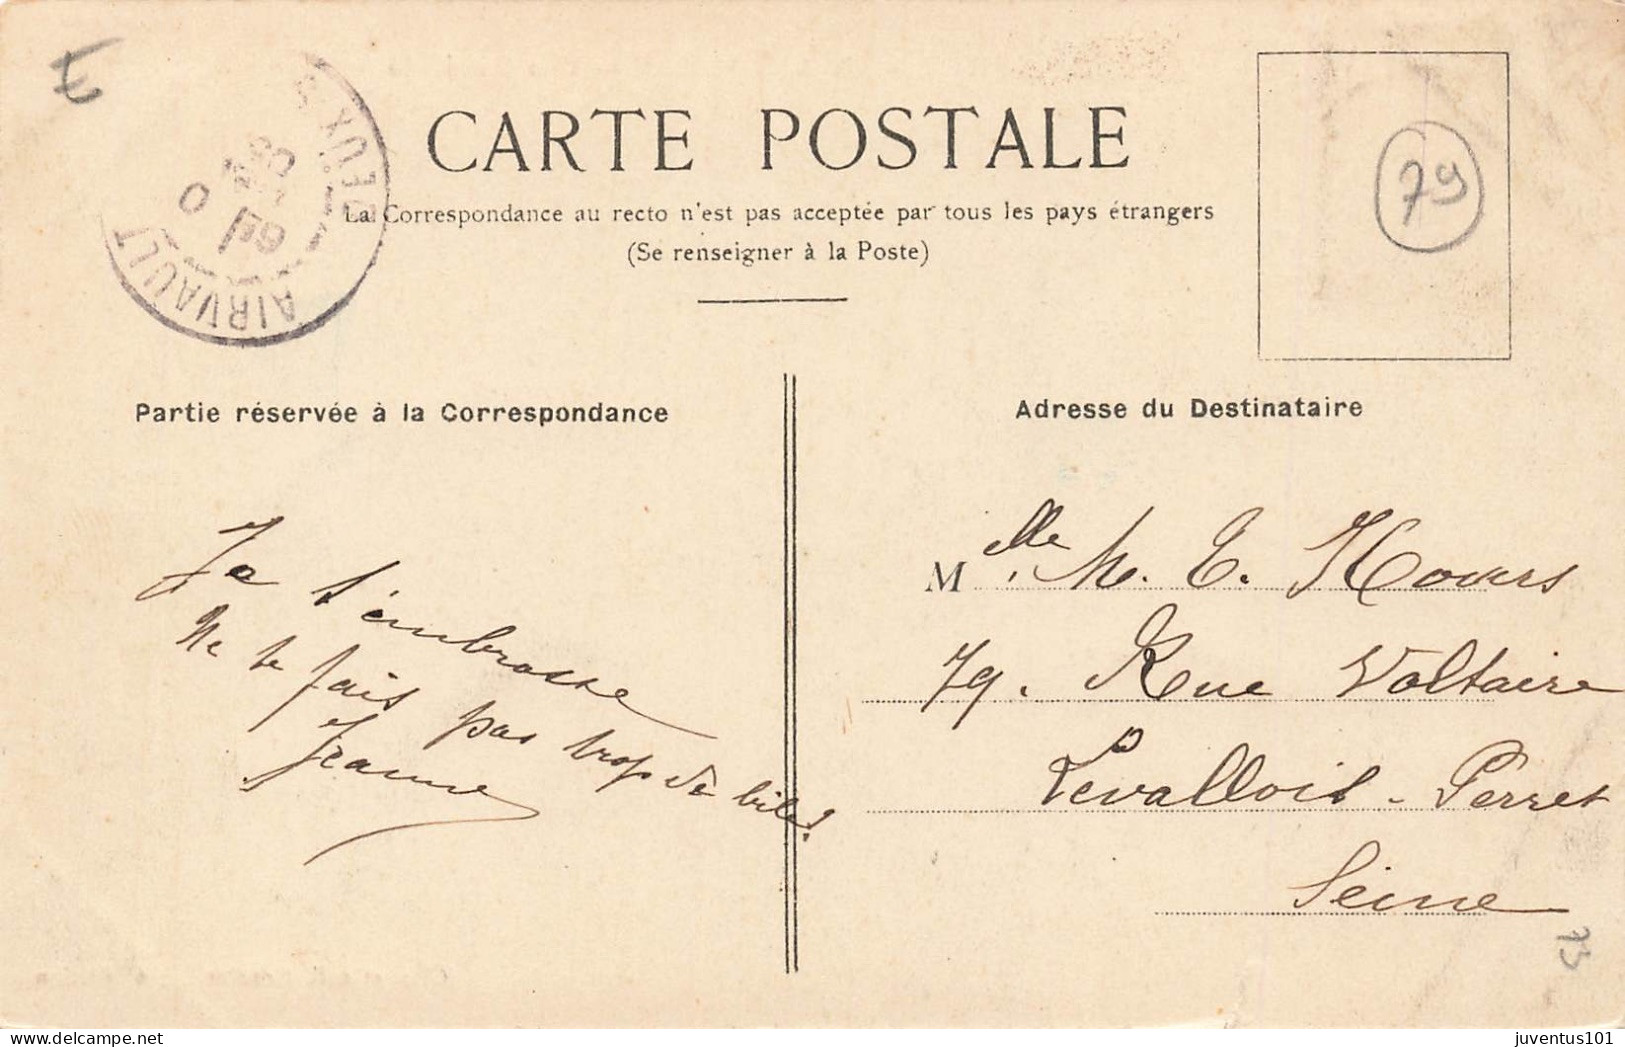 CARTE POSTALE
La Correspondance au recto n'est pas acceptée par tous les pays étrangers
(Se renseigner à la Poste)
AIRVAULT
79
Partie réservée à la Correspondance
Adresse du Destinataire
Je t'embrasse
Ne te fais pas trop de bile.
Jeanne
Melle. M. E.
79. Rue Voltaire
Levallois-Perret
Seine
juventus101